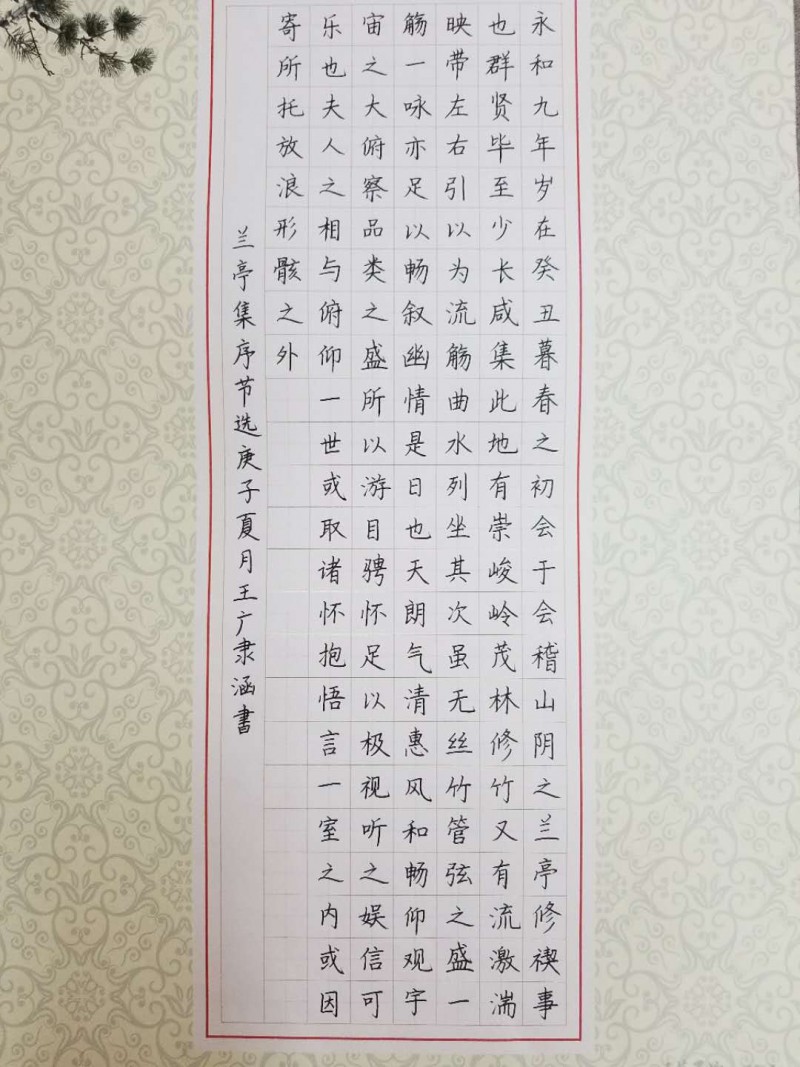 永和九年岁在癸丑暮春之初会于会稽山阴之兰亭修禊事
也群贤毕至少长咸集此地有崇峻岭茂林修竹又有流激湍
映带左右引以为流觞曲水列坐其次虽无丝竹管弦之盛一
觞一咏亦足以畅叙幽情是日也天朗气清惠风和畅仰观宇
宙之大俯察品类之盛所以游目骋怀足以极视听之娱信可
乐也夫人之相与俯仰一世或取诸怀抱悟言一室之内或因
寄所托放浪形骸之外
兰亭集序节选庚子夏月王广隶涵書